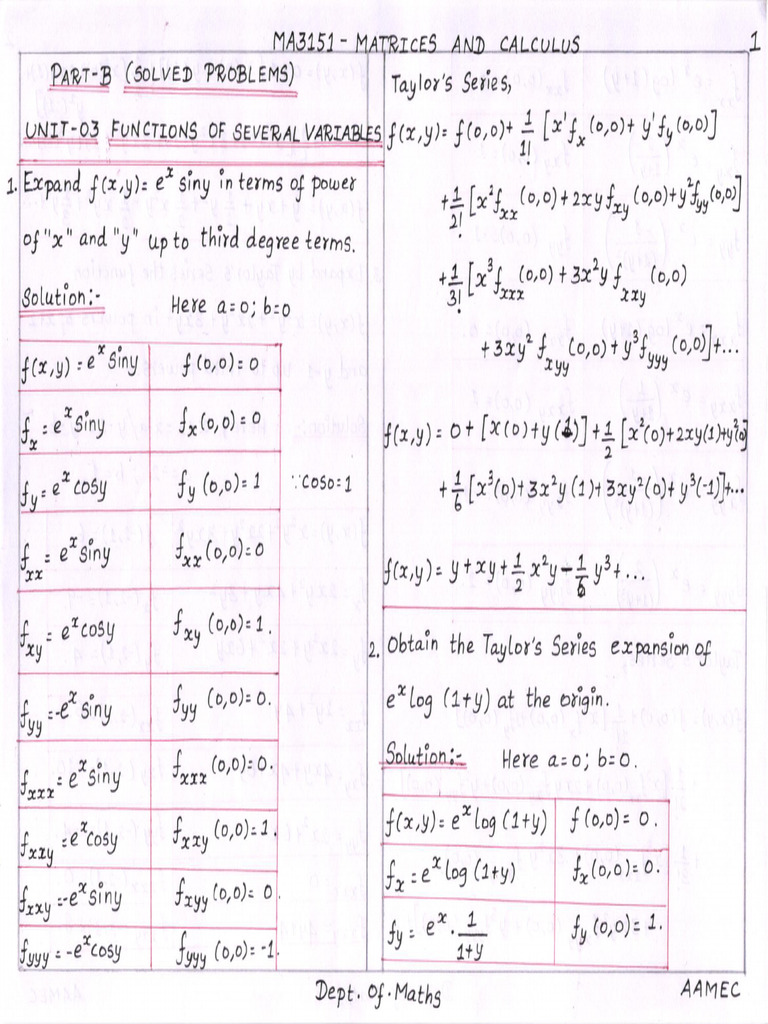 MA3151 - MATRICES AND CALCULUS 1
PART-B (SOLVED PROBLEMS)
UNIT-03 FUNCTIONS OF SEVERAL VARIABLES
1. Expand f(x,y) = eˣ siny in terms of power
of "x" and "y" up to third degree terms.
Solution:- Here a=0; b=0
f(x,y) = eˣ siny f(0,0) = 0
fₓ = eˣ siny fₓ(0,0) = 0
f_y = eˣ cosy f_y (0,0) = 1 ∵ cos0 = 1
f_xx = eˣ siny f_xx (0,0) = 0
f_xy = eˣ cosy f_xy (0,0) = 1.
f_yy = -eˣ siny f_yy (0,0) = 0.
f_xxx = eˣ siny f_xxx (0,0) = 0.
f_xxy = eˣ cosy f_xxy (0,0) = 1.
f_xxy = -eˣ siny f_xyy (0,0) = 0.
f_yyy = -eˣ cosy f_yyy (0,0) = -1.
Taylor's Series,
f(x,y) = f(0,0) + 1/1! [x'fₓ (0,0) + y'f_y (0,0)]
+ 1/2! [x² f_xx (0,0) + 2xy f_xy (0,0) + y² f_yy (0,0)]
+ 1/3! [x³ f_xxx (0,0) + 3x²y f_xxy (0,0)
+ 3xy² f_xyy (0,0) + y³ f_yyy (0,0)] + ...
f(x,y) = 0 + [x(0) + y(1)] + 1/2 [x²(0) + 2xy(1) + y²(0)]
+ 1/6 [x³(0) + 3x²y (1) + 3xy²(0) + y³(-1)] + ...
f(x,y) = y + xy + 1/2 x²y - 1/6 y³ + ...
2. Obtain the Taylor's Series expansion of
eˣ log (1+y) at the origin.
Solution:- Here a=0; b=0.
f(x,y) = eˣ log (1+y) f(0,0) = 0.
fₓ = eˣ log (1+y) fₓ(0,0) = 0.
f_y = eˣ . 1/1+y f_y (0,0) = 1.
Dept. Of. Maths AAMEC